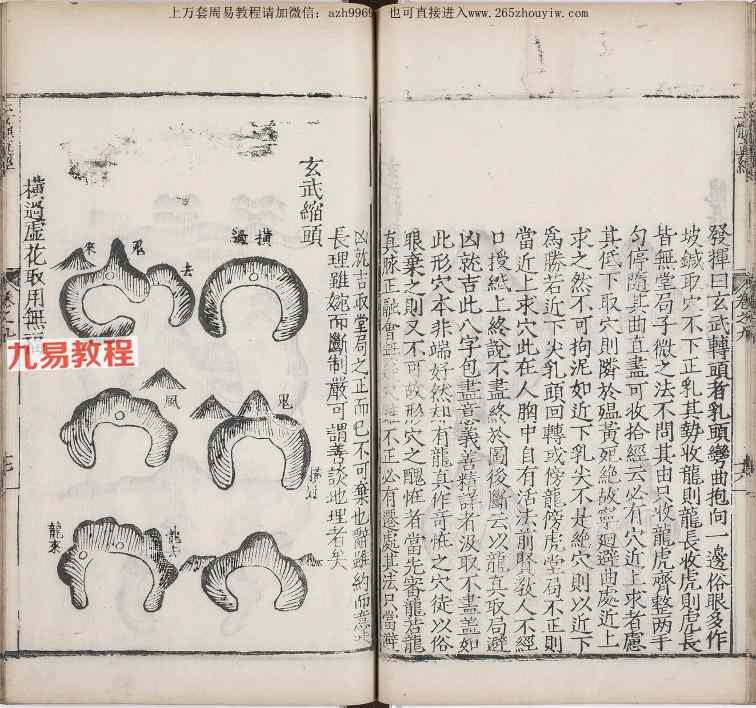 上万套周易教程请加微信:azh9969 也可直接进入www.265zhouyiw.com
發揮曰玄武轉頭者乳頭彎曲抱向一邊俗眼多作
坡鍼取穴不下正乳其勢收龍則龍長收虎則虎長
皆無堂局子微之法不問其由只收龍虎齊整兩手
勻停隨其曲直盡可收拾經云必有穴近上求者慮
其低下取穴則隣於殟黃死絶故寧迴避曲處近上
求之然不可拘泥如近下乳尖不是絶穴則以近下
爲勝若近下尖乳頭回轉或傍龍傍虎堂局不正則
當近上求穴此在人胸中自有活法前賢教人不經
口授紙上終說不盡終於圖後斷云以龍真取局避
凶就吉此八字包盡意義善精詳者汲取不盡蓋如
此形穴本非端好然却有龍真作奇恠之穴徒以俗
眼棄之則又不可故形穴之醜恠者當先審龍若龍
真脉正融會 不正必有遷處其法只當避
凶就吉取堂局之正而已不可棄也辭雖約而意
長理雖婉而斷制嚴可謂善談地理者矣
玄武縮頭
橫過
來 鬼 去
鬼
風
龍來
橫過虛花取用無
九易教程
卷之九